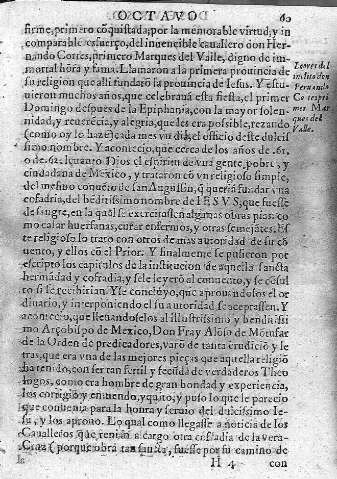 OCTAVO 60
firme, primero cõquistada; por la memorable virtud, y in
comparable esfuerço, del inuencible cauallero don Her-
nando Cortes, primero Marques del Valle, digno de im-
mortal hõra y fama. Llamaron a la primera prouincia de
su religion que alli fundarõ la prouincia de Iesus. Y estu-
uieron muchos años, que celebrauã esta fiesta, el primer
Domingo despues de la Epiphania, con la mayor solen-
nidad, y reuerẽcia, y alegria, que les era possible, rezando
(como oy lo haze cada mes vn dia) el officio deste dulcis
simo nombre. Y acontecio, que cerca de los años de .61.
o de .62. leuantò Dios el espiritu de vna gente, pobre, y
ciudadana de Mexico, y trataron cõ vn religioso simple,
del mesmo conuento de san Augustin, q̃ queriã fundar vna
cofadria, del beditissimo nombre de IESVS, que fuesse
de sangre, en la qual se exercitassẽ algunas obras pias: co
mo casar huerfanas, curar enfermos, y otras semejãtes. Es
te religioso lo tratò con otros de mas autoridad de su cõ
uento, y ellos cõ el Prior. Y finalmente se pusieron por
escripto los capitolos de la institucion de aquella sancta
hermãdad y cofradia, y se le leyerõ al conuento, y se cõsul
tò si se recibirian. Y se concluyo, que aprouandolos el or
dinario, y interponiendo el su autoridad se aceptassen. Y
acontecio, que lleuandoselos al illustrissimo y bendissi-
mo Arçobispo de Mexico, Don Fray Alõso de Mõtufar
de la Orden de predicadores, varõ de tanta erudiciõ y le
tras, que era vna de las mejores pieças que aquella religiõ
ha tenido, con ser tan fertil y fecũda de verdaderos Theo
logos, como era hombre de gran bondad y experiencia,
los corrigio y enmendo, y quito, y puso lo que le parecio
que conuenia para la honra y seruicio del dulcissimo Ie-
su, y los aprouo. Lo qual como llegasse a noticia de los
Caualleros que tenian a cargo otra cofradia de la vera-
Cruz (porque obra tan sancta, fuesse por su camino de
la H 4 con
Loores del
inclito don
Fernando
Cortes pri
mer Mar
ques del
Valle.